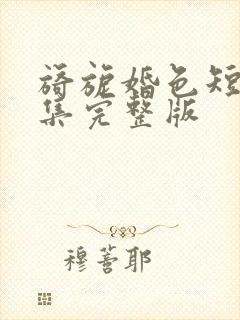 旖旎婚色短
集完整版
穆蓍耶